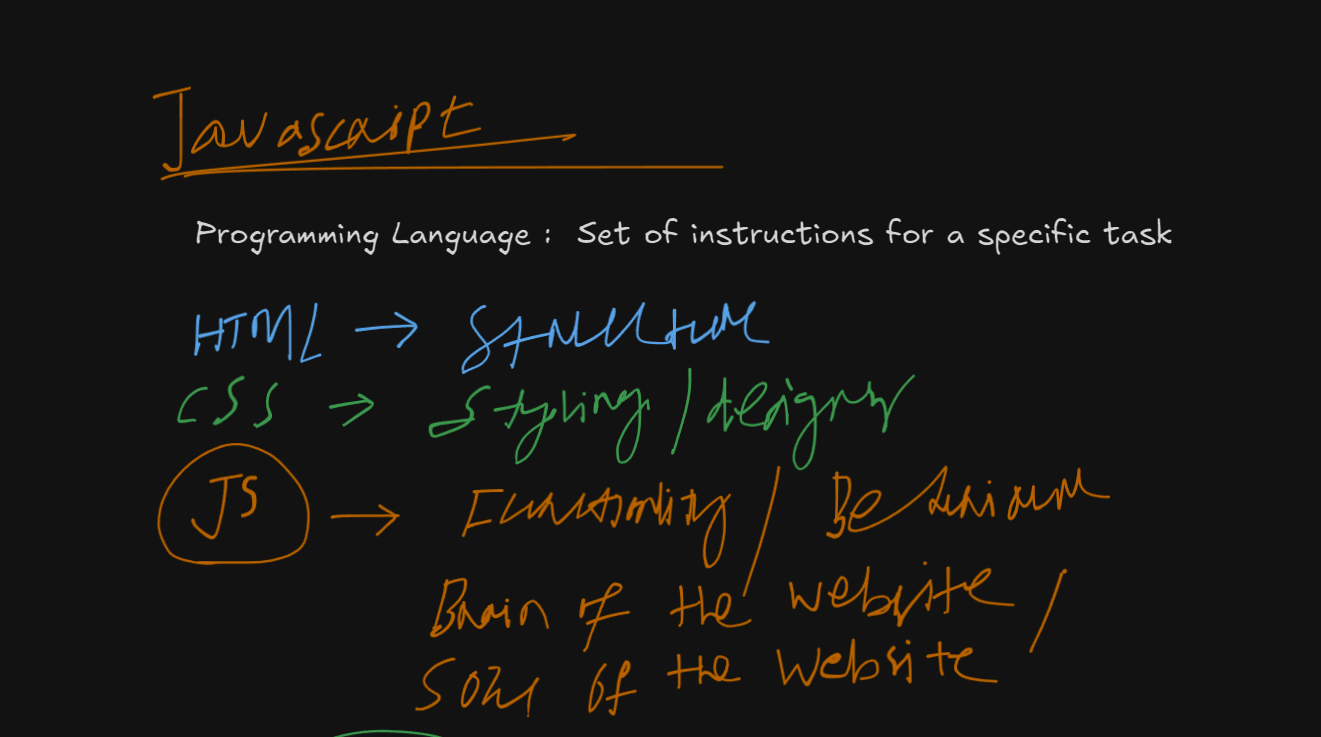 Javascript
Programming Language : Set of instructions for a specific task
HTML → Structure
CSS → Styling / designing
JS → Functionality / Behaviour
Brain of the website /
Soul of the website